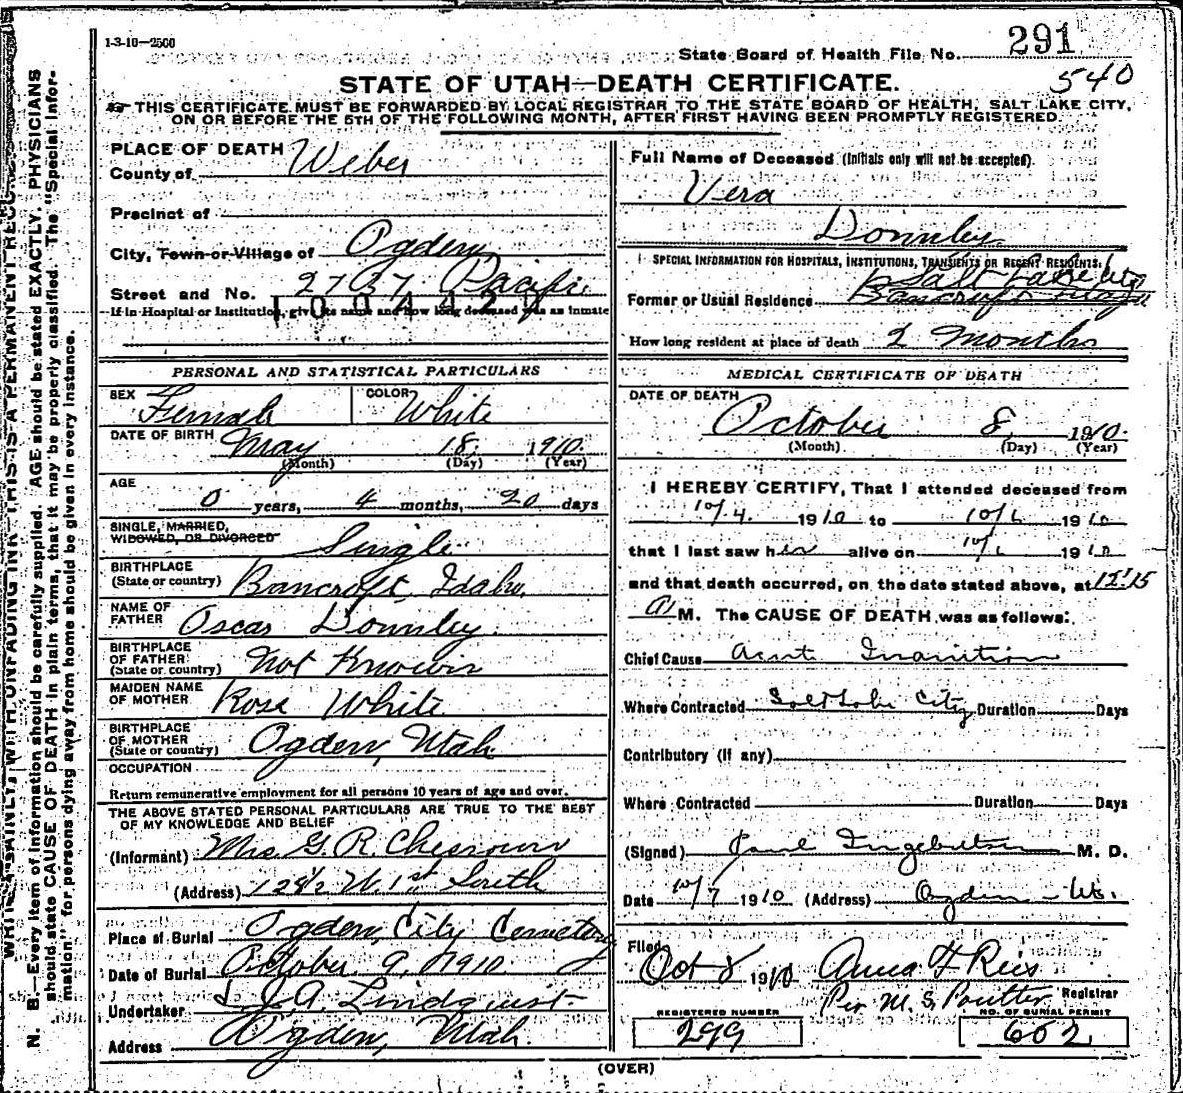 1-3-10—2500
State Board of Health File No. 291
540
STATE OF UTAH—DEATH CERTIFICATE.
THIS CERTIFICATE MUST BE FORWARDED BY LOCAL REGISTRAR TO THE STATE BOARD OF HEALTH, SALT LAKE CITY,
ON OR BEFORE THE 5TH OF THE FOLLOWING MONTH, AFTER FIRST HAVING BEEN PROMPTLY REGISTERED.
PLACE OF DEATH
County of Weber
Precinct of
City, Town or Village of Ogden
Street and No. 2737 Pacific
If in Hospital or Institution, give its name and how long deceased was an inmate
PERSONAL AND STATISTICAL PARTICULARS
SEX Female COLOR White
DATE OF BIRTH May 18, 1910.
(Month) (Day) (Year)
AGE
0 years, 4 months, 20 days
SINGLE, MARRIED,
WIDOWED, OR DIVORCED Single
BIRTHPLACE
(State or country) Bancroft, Idaho.
NAME OF
FATHER Oscar Donnley.
BIRTHPLACE
OF FATHER
(State or country) Not Known
MAIDEN NAME
OF MOTHER Rose White
BIRTHPLACE
OF MOTHER
(State or country) Ogden, Utah
OCCUPATION
Return remunerative employment for all persons 10 years of age and over.
THE ABOVE STATED PERSONAL PARTICULARS ARE TRUE TO THE BEST
OF MY KNOWLEDGE AND BELIEF
(Informant) Mrs. G. R.
(Address) W. 1st South
Place of Burial Ogden City Cemetery
Date of Burial October 9, 1910
Undertaker J. A. Lindquist
Address Ogden, Utah.
Full Name of Deceased (Initials only will not be accepted).
Vera
Donnley
SPECIAL INFORMATION FOR HOSPITALS, INSTITUTIONS, TRANSIENTS OR RECENT RESIDENTS:
Salt Lake City
Former or Usual Residence Bancroft Idaho
How long resident at place of death 2 Months
MEDICAL CERTIFICATE OF DEATH
DATE OF DEATH
October 8, 1910.
(Month) (Day) (Year)
I HEREBY CERTIFY, That I attended deceased from
10/4. 1910 to 10/6 1910
that I last saw her alive on 10/6 1910
and that death occurred, on the date stated above, at 12:15
A M. The CAUSE OF DEATH was as follows:
Chief Cause Acute Inanition
Where Contracted Salt Lake City Duration Days
Contributory (if any)
Where Contracted Duration Days
(Signed) Paul Ingebretsen M. D.
Date 10/7 1910 (Address) Ogden - Ut.
Filed
Oct 8 1910 Anna F Reis
Per M. S. Poutter Registrar
REGISTERED NUMBER NO. OF BURIAL PERMIT
299 602
(OVER)
N. B.—Every item of information should be carefully supplied. AGE should be stated EXACTLY. PHYSICIANS
should state CAUSE OF DEATH in plain terms, that it may be properly classified. The "Special Infor-
mation" for persons dying away from home should be given in every instance.